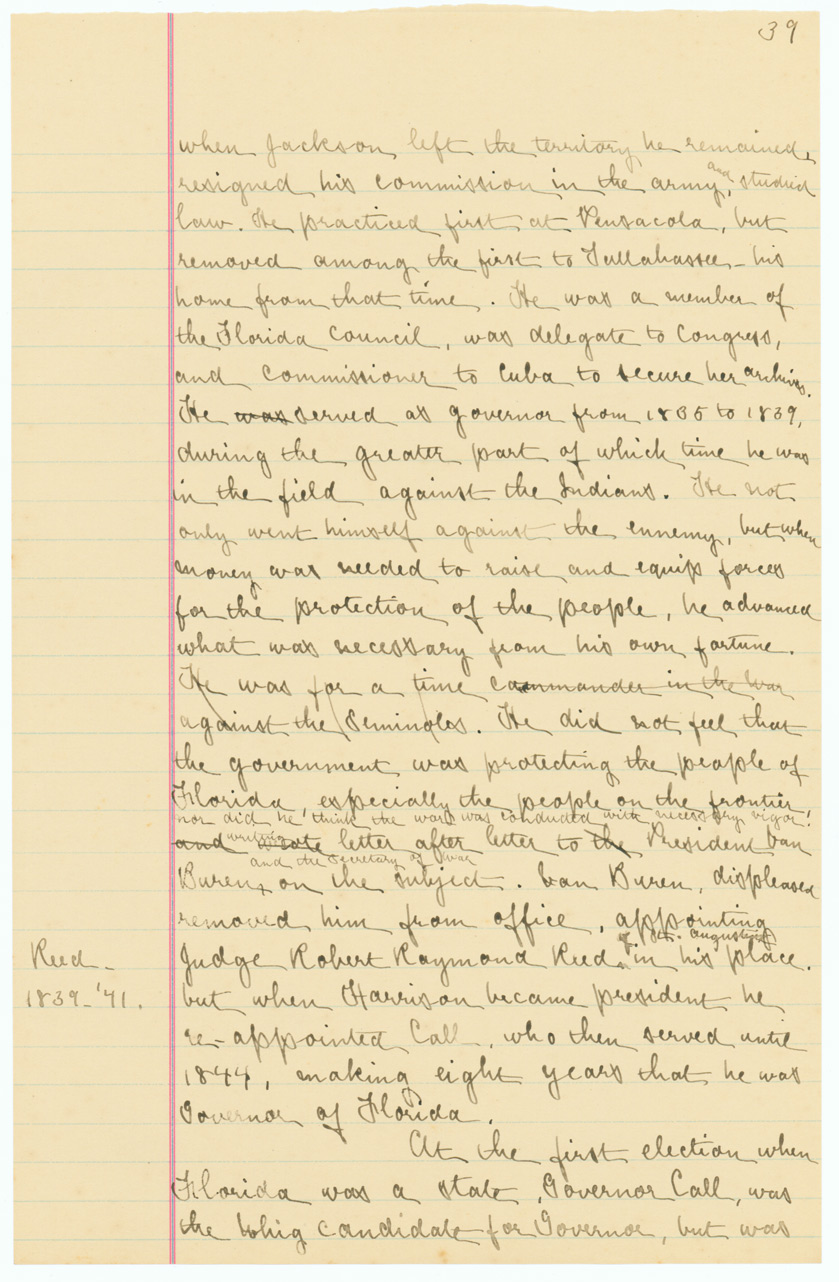 39
when Jackson left the territory he remained,
resigned his commission in the army, and studied
law. He practiced first at Pensacola, but
removed among the first to Tallahassee - his
home from that time. He was a member of
the Florida Council, was delegate to Congress,
and commissioner to Cuba to secure her archives.
He was served as governor from 1835 to 1839,
during the greater part of which time he was
in the field against the Indians. He not
only went himself against the ennemy, but when
money was needed to raise and equip forces
for the protection of the people, he advanced
what was necessary from his own fortune.
He was for a time commander in the war
against the Seminoles. He did not feel that
the government was protecting the people of
Florida, especially the people on the frontier
nor did he think the war was conducted with necessary vigor!
and wrote writing letter after letter to the President Van
and the Secretary of War
Buren, on the subject. Van Buren, displeased
removed him from office, appointing
of St. Augustine
Judge Robert Raymond Reed, in his place.
Reed -
1839-'41.
but when Harrison became president he
re-appointed Call, who then served until
1844, making eight years that he was
Governor of Florida.
At the first election when
Florida was a state, Governor Call, was
the Whig candidate for Governor, but was